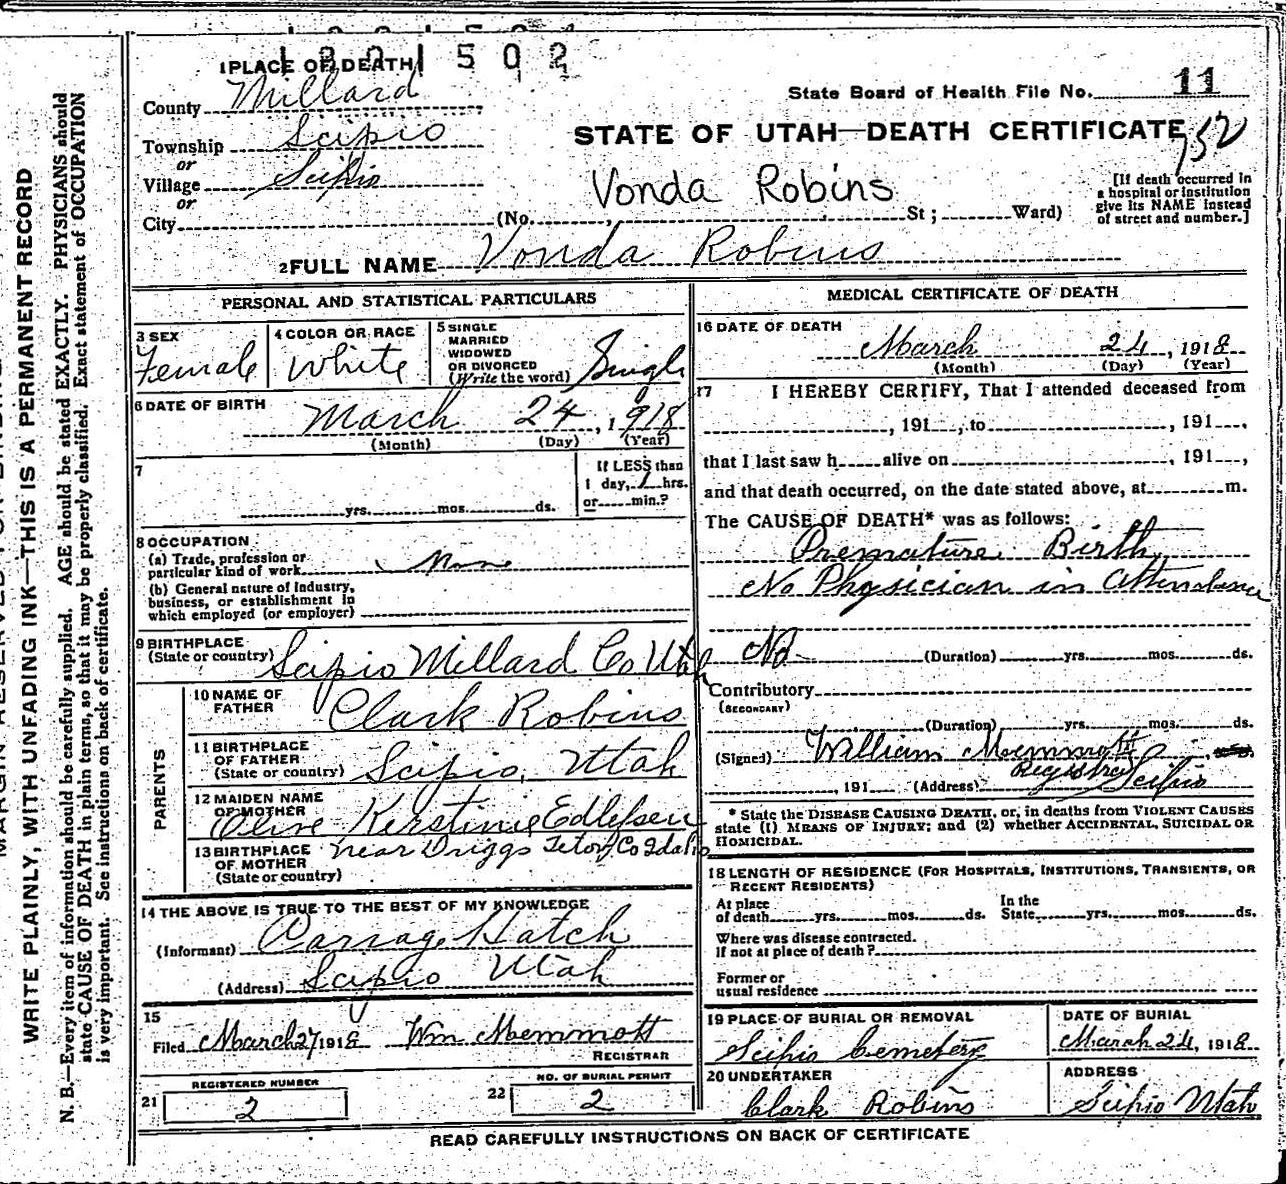 1221502
1 PLACE OF DEATH
County Millard
State Board of Health File No. 11
Township Scipio
or
STATE OF UTAH—DEATH CERTIFICATE 752
Village Scipio
or
Vonda Robins
[If death occurred in
a hospital or institution
give its NAME instead
of street and number.]
City (No. , St ; Ward)
2 FULL NAME Vonda Robins
PERSONAL AND STATISTICAL PARTICULARS
3 SEX
Female
4 COLOR OR RACE
White
5 SINGLE
MARRIED
WIDOWED
OR DIVORCED
(Write the word) Single
6 DATE OF BIRTH
March 24, 1918
(Month) (Day) (Year)
7
yrs. mos. ds.
If LESS than
1 day, 1 hrs.
or min.?
8 OCCUPATION
(a) Trade, profession or
particular kind of work None
(b) General nature of industry,
business, or establishment in
which employed (or employer)
9 BIRTHPLACE
(State or country) Scipio Millard Co Utah
PARENTS
10 NAME OF
FATHER Clark Robins
11 BIRTHPLACE
OF FATHER
(State or country) Scipio, Utah
12 MAIDEN NAME
OF MOTHER Olive Kerstine Edlefsen
13 BIRTHPLACE
OF MOTHER
(State or country) near Driggs Teton Co Idaho
14 THE ABOVE IS TRUE TO THE BEST OF MY KNOWLEDGE
(Informant) Hatch
(Address) Scipio Utah
15
Filed March 27, 1918 Wm Memmott
REGISTRAR
REGISTERED NUMBER
21 2
NO. OF BURIAL PERMIT
22 2
MEDICAL CERTIFICATE OF DEATH
16 DATE OF DEATH
March 24, 1918
(Month) (Day) (Year)
17 I HEREBY CERTIFY, That I attended deceased from
, 191 , to , 191 ,
that I last saw h alive on , 191 ,
and that death occurred, on the date stated above, at m.
The CAUSE OF DEATH* was as follows:
Premature Birth
No Physician in Attendance
No (Duration) yrs. mos. ds.
Contributory
(SECONDARY)
(Duration) yrs. mos. ds.
(Signed) William Memmott
Registrar
, 191 (Address) Scipio
* State the DISEASE CAUSING DEATH, or, in deaths from VIOLENT CAUSES
state (1) MEANS OF INJURY; and (2) whether ACCIDENTAL, SUICIDAL OR
HOMICIDAL.
18 LENGTH OF RESIDENCE (FOR HOSPITALS, INSTITUTIONS, TRANSIENTS, OR
RECENT RESIDENTS)
At place
of death yrs. mos. ds.
In the
State yrs. mos. ds.
Where was disease contracted.
if not at place of death?
Former or
usual residence
19 PLACE OF BURIAL OR REMOVAL
Scipio Cemetery
DATE OF BURIAL
March 24, 1918
20 UNDERTAKER
Clark Robins
ADDRESS
Scipio Utah
READ CAREFULLY INSTRUCTIONS ON BACK OF CERTIFICATE
WRITE PLAINLY, WITH UNFADING INK—THIS IS A PERMANENT RECORD
N. B.—Every item of information should be carefully supplied. AGE should be stated EXACTLY. PHYSICIANS should
state CAUSE OF DEATH in plain terms, so that it may be properly classified. Exact statement of OCCUPATION
is very important. See instructions on back of certificate.